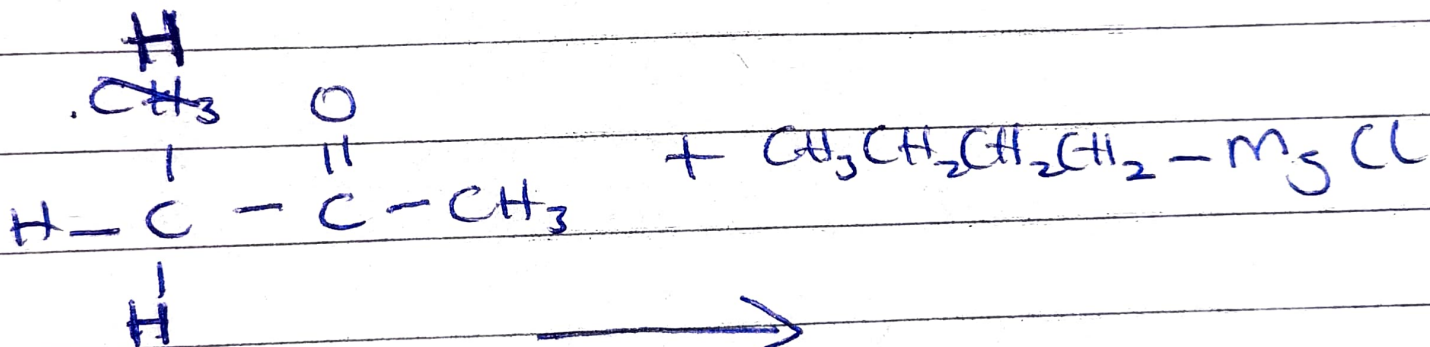 H
.CH₃ O
| ||
H – C – C – CH₃ + CH₃CH₂CH₂CH₂ – Mg Cl
|
H
⟶